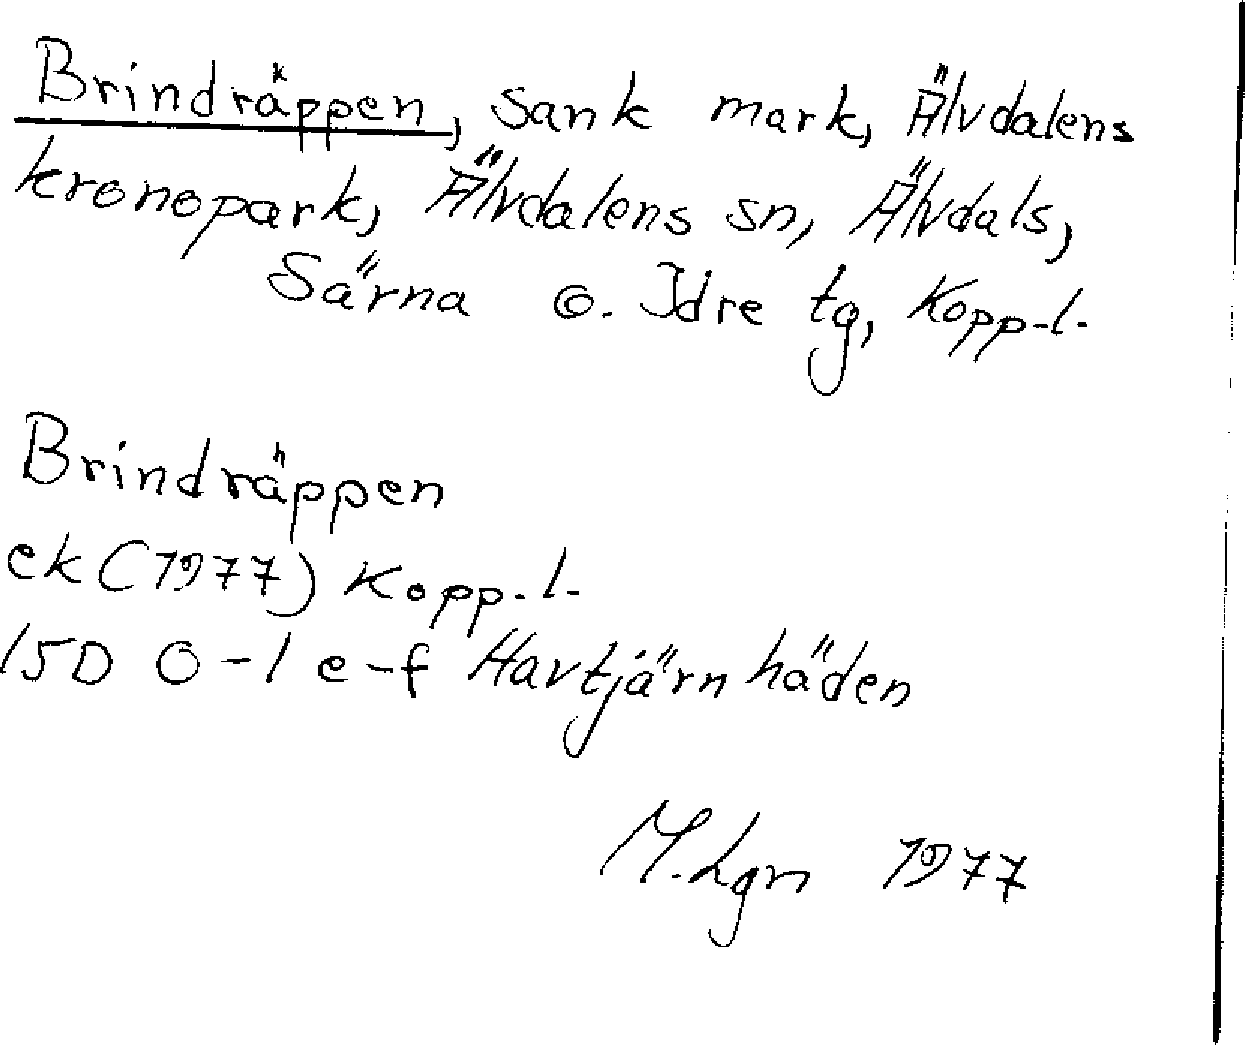 Brindräppen, sank mark, Älvdalens
kronopark, Älvdalens sn, Älvdals,
Särna o. Idre tg, Kopp-l.
Brindräppen
ek (1977) Kopp.l.
15D 0-1 e-f Havtjärnhäden
M.Lgn 1977